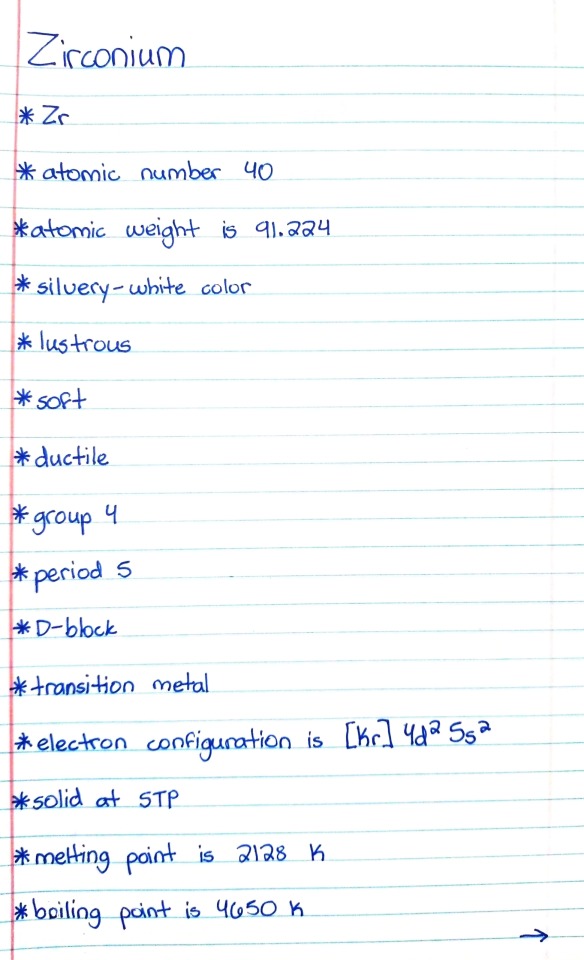 Zirconium
* Zr
* atomic number 40
* atomic weight is 91.224
* silvery-white color
* lustrous
* soft
* ductile
* group 4
* period 5
* D-block
* transition metal
* electron configuration is [Kr] 4d² 5s²
* solid at STP
* melting point is 2128 K
* boiling point is 4650 K
→